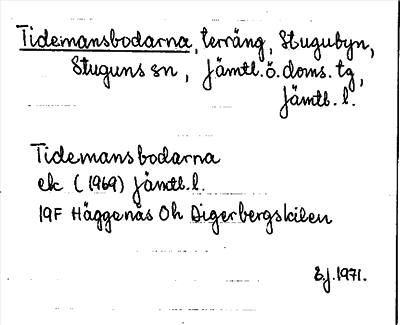 Tidemansbodarna, terräng, Stugubyn,
Stuguns sn, Jämtl.ö.doms.tg,
Jämtl.l.
Tidemansbodarna
ek (1969) Jämtl.l.
19F Häggenås Oh Digerbergskilen
E.J.1971.